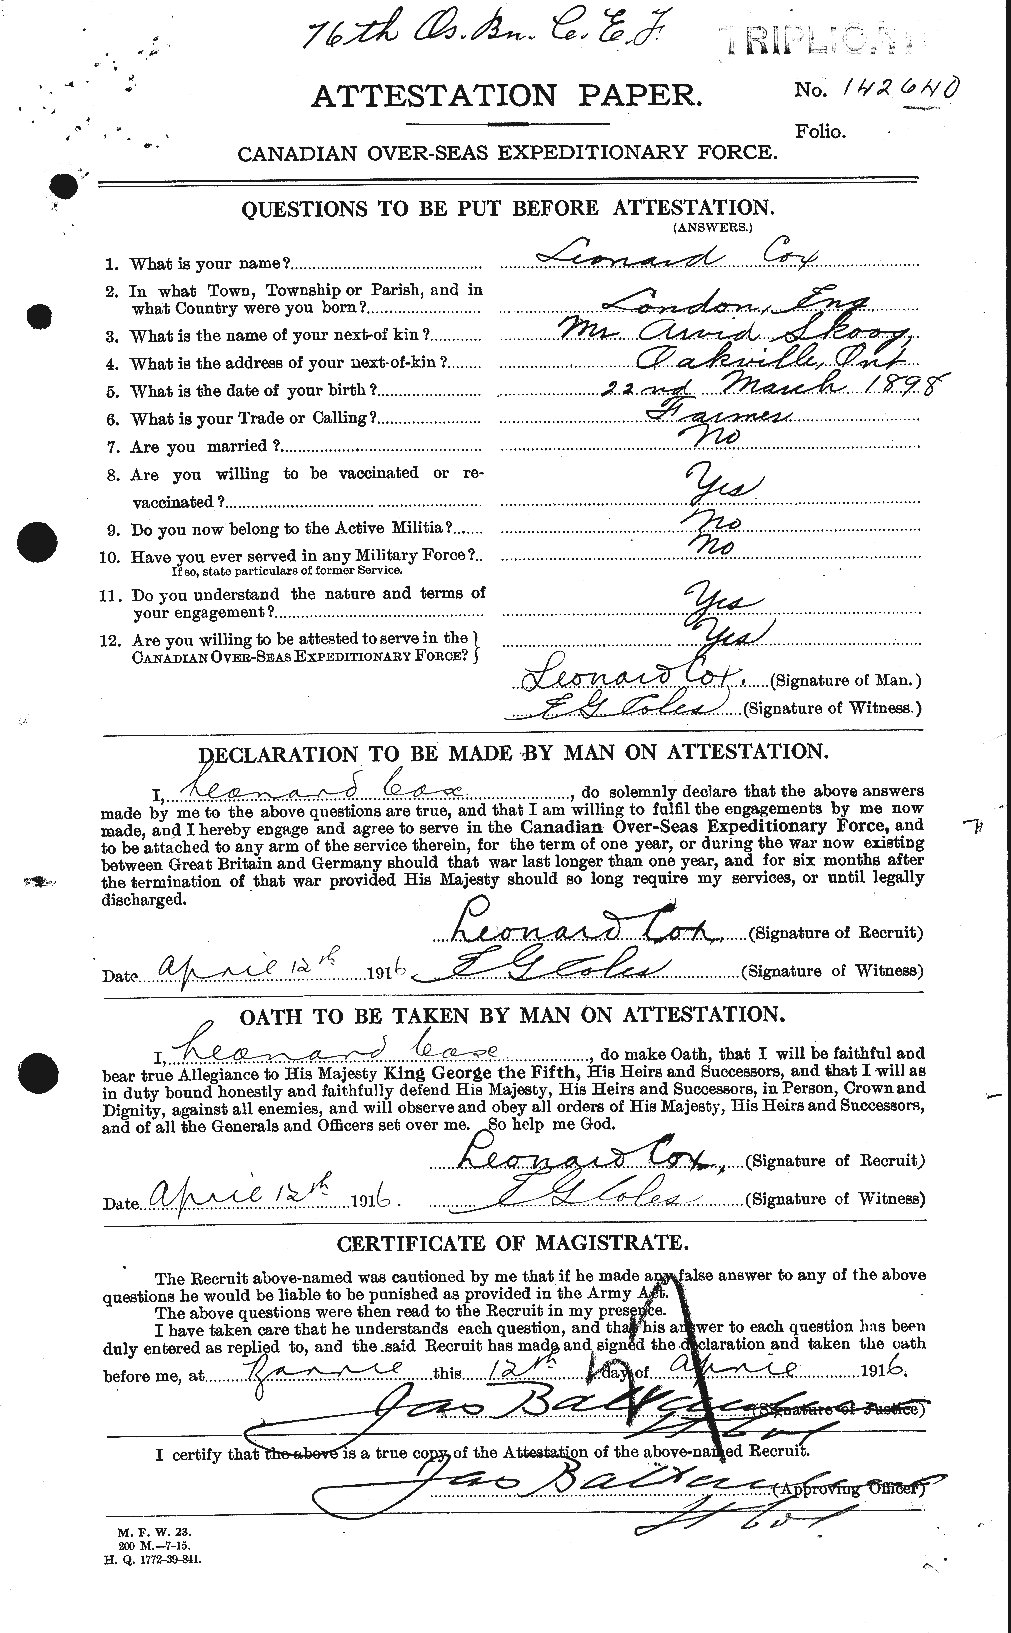 76th Os. Bn. C. E. F. TRIPLICATE
ATTESTATION PAPER.
No. 142640
Folio.
CANADIAN OVER-SEAS EXPEDITIONARY FORCE.
QUESTIONS TO BE PUT BEFORE ATTESTATION.
(ANSWERS.)
1. What is your name? Leonard Cox
2. In what Town, Township or Parish, and in
what Country were you born? London, Eng
3. What is the name of your next-of kin? Mr Arvid Skoog,
4. What is the address of your next-of-kin? Oakville, Ont
5. What is the date of your birth? 22nd March 1898
6. What is your Trade or Calling? Farmer
7. Are you married? No
8. Are you willing to be vaccinated or re-
vaccinated? Yes
9. Do you now belong to the Active Militia? No
10. Have you ever served in any Military Force? No
If so, state particulars of former Service.
11. Do you understand the nature and terms of
your engagement? Yes
12. Are you willing to be attested to serve in the
CANADIAN OVER-SEAS EXPEDITIONARY FORCE? Yes
Leonard Cox. (Signature of Man.)
E G Coles (Signature of Witness.)
DECLARATION TO BE MADE BY MAN ON ATTESTATION.
I, Leonard Cox, do solemnly declare that the above answers
made by me to the above questions are true, and that I am willing to fulfil the engagements by me now
made, and I hereby engage and agree to serve in the Canadian Over-Seas Expeditionary Force, and
to be attached to any arm of the service therein, for the term of one year, or during the war now existing
between Great Britain and Germany should that war last longer than one year, and for six months after
the termination of that war provided His Majesty should so long require my services, or until legally
discharged.
Leonard Cox, (Signature of Recruit)
Date April 12th 1916. E G Coles (Signature of Witness)
OATH TO BE TAKEN BY MAN ON ATTESTATION.
I, Leonard Cox, do make Oath, that I will be faithful and
bear true Allegiance to His Majesty King George the Fifth, His Heirs and Successors, and that I will as
in duty bound honestly and faithfully defend His Majesty, His Heirs and Successors, in Person, Crown and
Dignity, against all enemies, and will observe and obey all orders of His Majesty, His Heirs and Successors,
and of all the Generals and Officers set over me. So help me God.
Leonard Cox, (Signature of Recruit)
Date April 12th 1916. E G Coles (Signature of Witness)
CERTIFICATE OF MAGISTRATE.
The Recruit above-named was cautioned by me that if he made any false answer to any of the above
questions he would be liable to be punished as provided in the Army Act.
The above questions were then read to the Recruit in my presence.
I have taken care that he understands each question, and that his answer to each question has been
duly entered as replied to, and the said Recruit has made and signed the declaration and taken the oath
before me, at Barrie this 12th day of April 1916.
Jas (Signature of Justice)
Lt Col
I certify that the above is a true copy of the Attestation of the above-named Recruit.
Jas (Approving Officer)
Lt Col
M. F. W. 23.
200 M.—7-15.
H. Q. 1772-39-841.